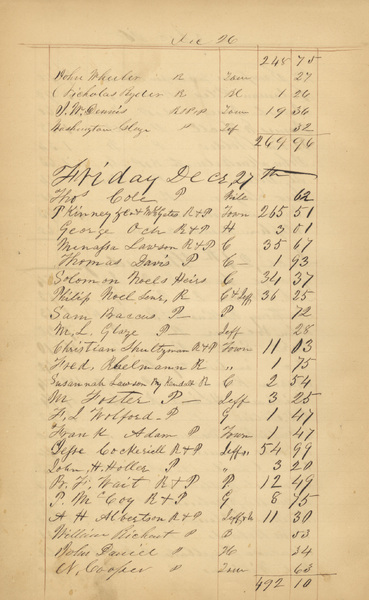 Dec 26
245 75
John Wheeler R Town 27
Nicholas Ryder R M 1 26
J. W. Dennis R & P Town 19 36
Washington Glaze P Jef 32
269 96
Friday Dec 27th
Thos Cole P Mile 62
P Kinney & P Town 265 51
George Ock R & P H 3 01
Menassa Lawson R & P C 35 67
Thomas Davis P C 1 93
Solomon Noels Heirs C 34 37
Philip Noel Senr, R C & Jeff 36 25
Sam Barcus P P 72
Wm. L. Glaze P Jeff 28
Christian Shultzman R & P Town 11 03
Fred. Rhelmann R " 1 75
Susannah Lawson By Kendall R C 2 54
Wm Foster P Jeff 3 25
F. L Wolford P G 1 47
Frank Adam P Town 1 47
Jesse Cockeriell R & P Jeffn 54 99
John, H. Holler P " 3 20
R. F. Wait R & P P 12 49
P. McCoy R & P G 8 75
A H Albertson R & P Jeff 11 30
William Rickart P D 53
Rufus Daniel P M 34
N. Cooper P Town 63
492 10